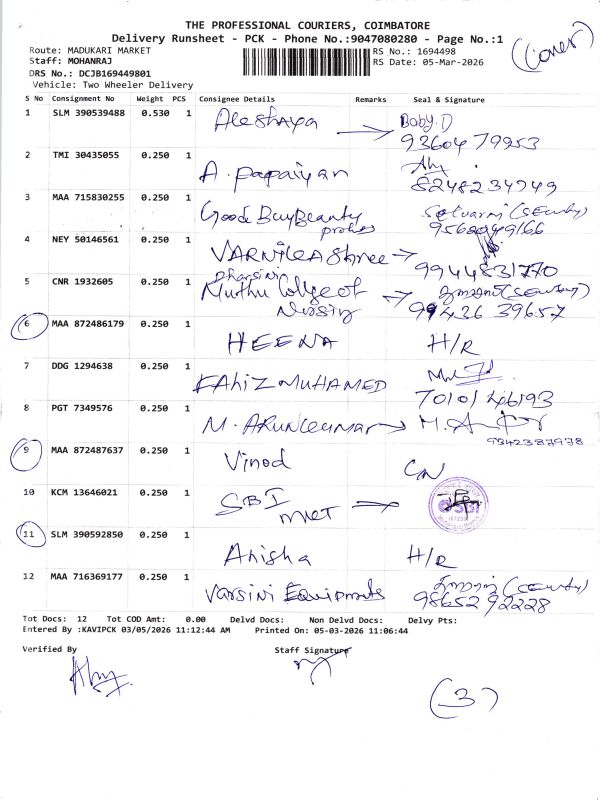 THE PROFESSIONAL COURIERS, COIMBATORE
Delivery Runsheet - PCK - Phone No.:9047080280 - Page No.:1
Route: MADUKARI MARKET
RS No.: 1694498
Staff: MOHANRAJ
RS Date: 05-Mar-2026
DRS No.: DCJB169449801
Vehicle: Two Wheeler Delivery
S No Consignment No Weight PCS Consignee Details Remarks Seal & Signature
1 SLM 390539488 0.530 1 Aleshaya Baby.D
93604 79953
2 TMI 30435055 0.250 1 A. papaiyan
8248234749
3 MAA 715830255 0.250 1 Good Buy Beauty
4 NEY 50146561 0.250 1 VARNIKA Shree
9944831770
Dharsini
5 CNR 1932605 0.250 1 Muthu College of
Nursing 99436 39657
6 MAA 872486179 0.250 1 HEENA H/R
7 DDG 1294638 0.250 1 FAHIZ MUHAMED
70101 46193
8 PGT 7349576 0.250 1 M. ARUNkumar
9342387978
9 MAA 872487637 0.250 1 Vinod
10 KCM 13646021 0.250 1 SBI
MKT SBI
11 SLM 390592850 0.250 1 Anisha H/R
12 MAA 716369177 0.250 1 Varsini Equipments
98652 92228
Tot Docs: 12 Tot COD Amt: 0.00 Delvd Docs: Non Delvd Docs: Delvy Pts:
Entered By :KAVIPCK 03/05/2026 11:12:44 AM Printed On: 05-03-2026 11:06:44
Verified By Staff Signature
(3)